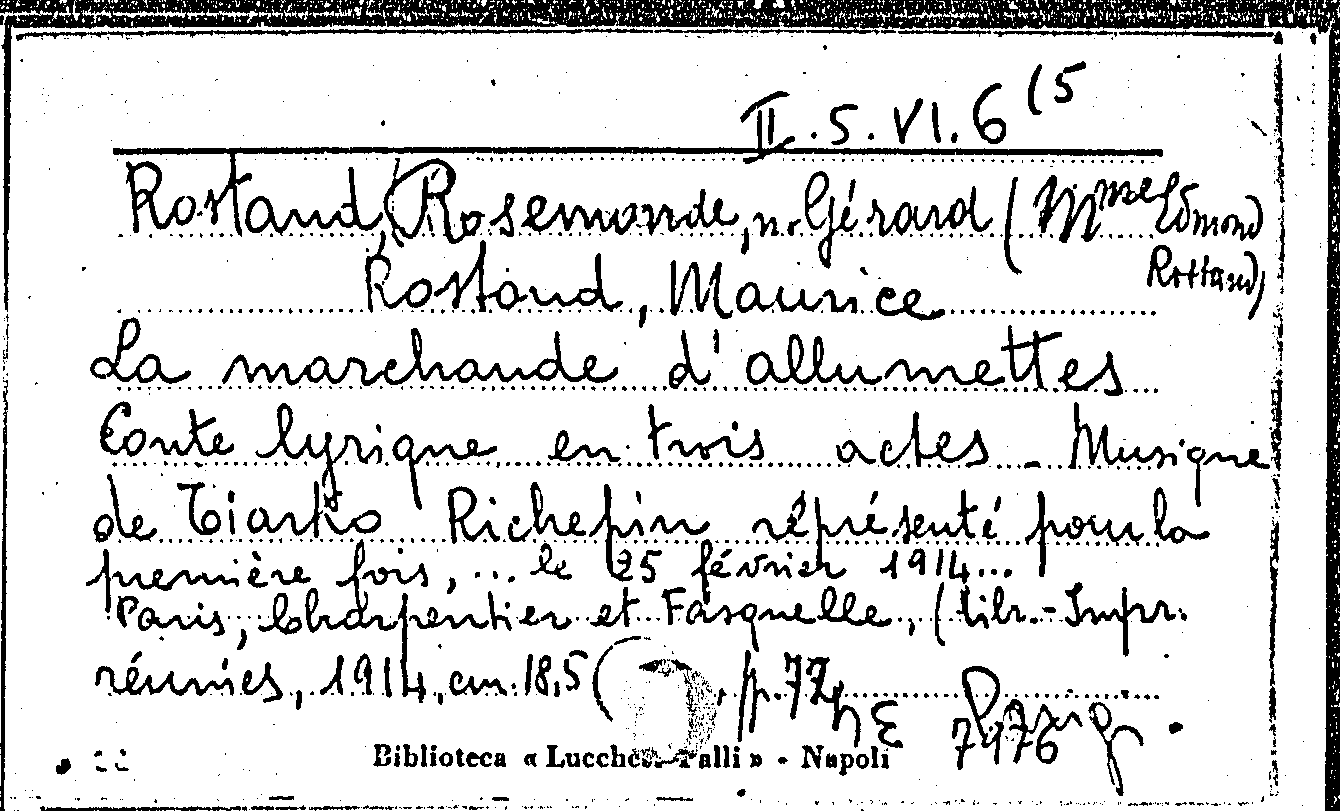 II.5.VI.6 (5
Rostand, (Rosemonde, n. Gérard (Mme Edmond
Rostand)
Rostand, Maurice
La marchande d'allumettes
Conte lyrique en trois actes - Musique
de Tiarko Richepin réprésenté pour la
première fois, ... le 25 février 1914...
Paris, Charpentier et Fasquelle, (libr.-Impr.
réunies, 1914, cm. 18,5 ( , pp. 72
7976
Biblioteca « Lucchesi Palli » - Napoli